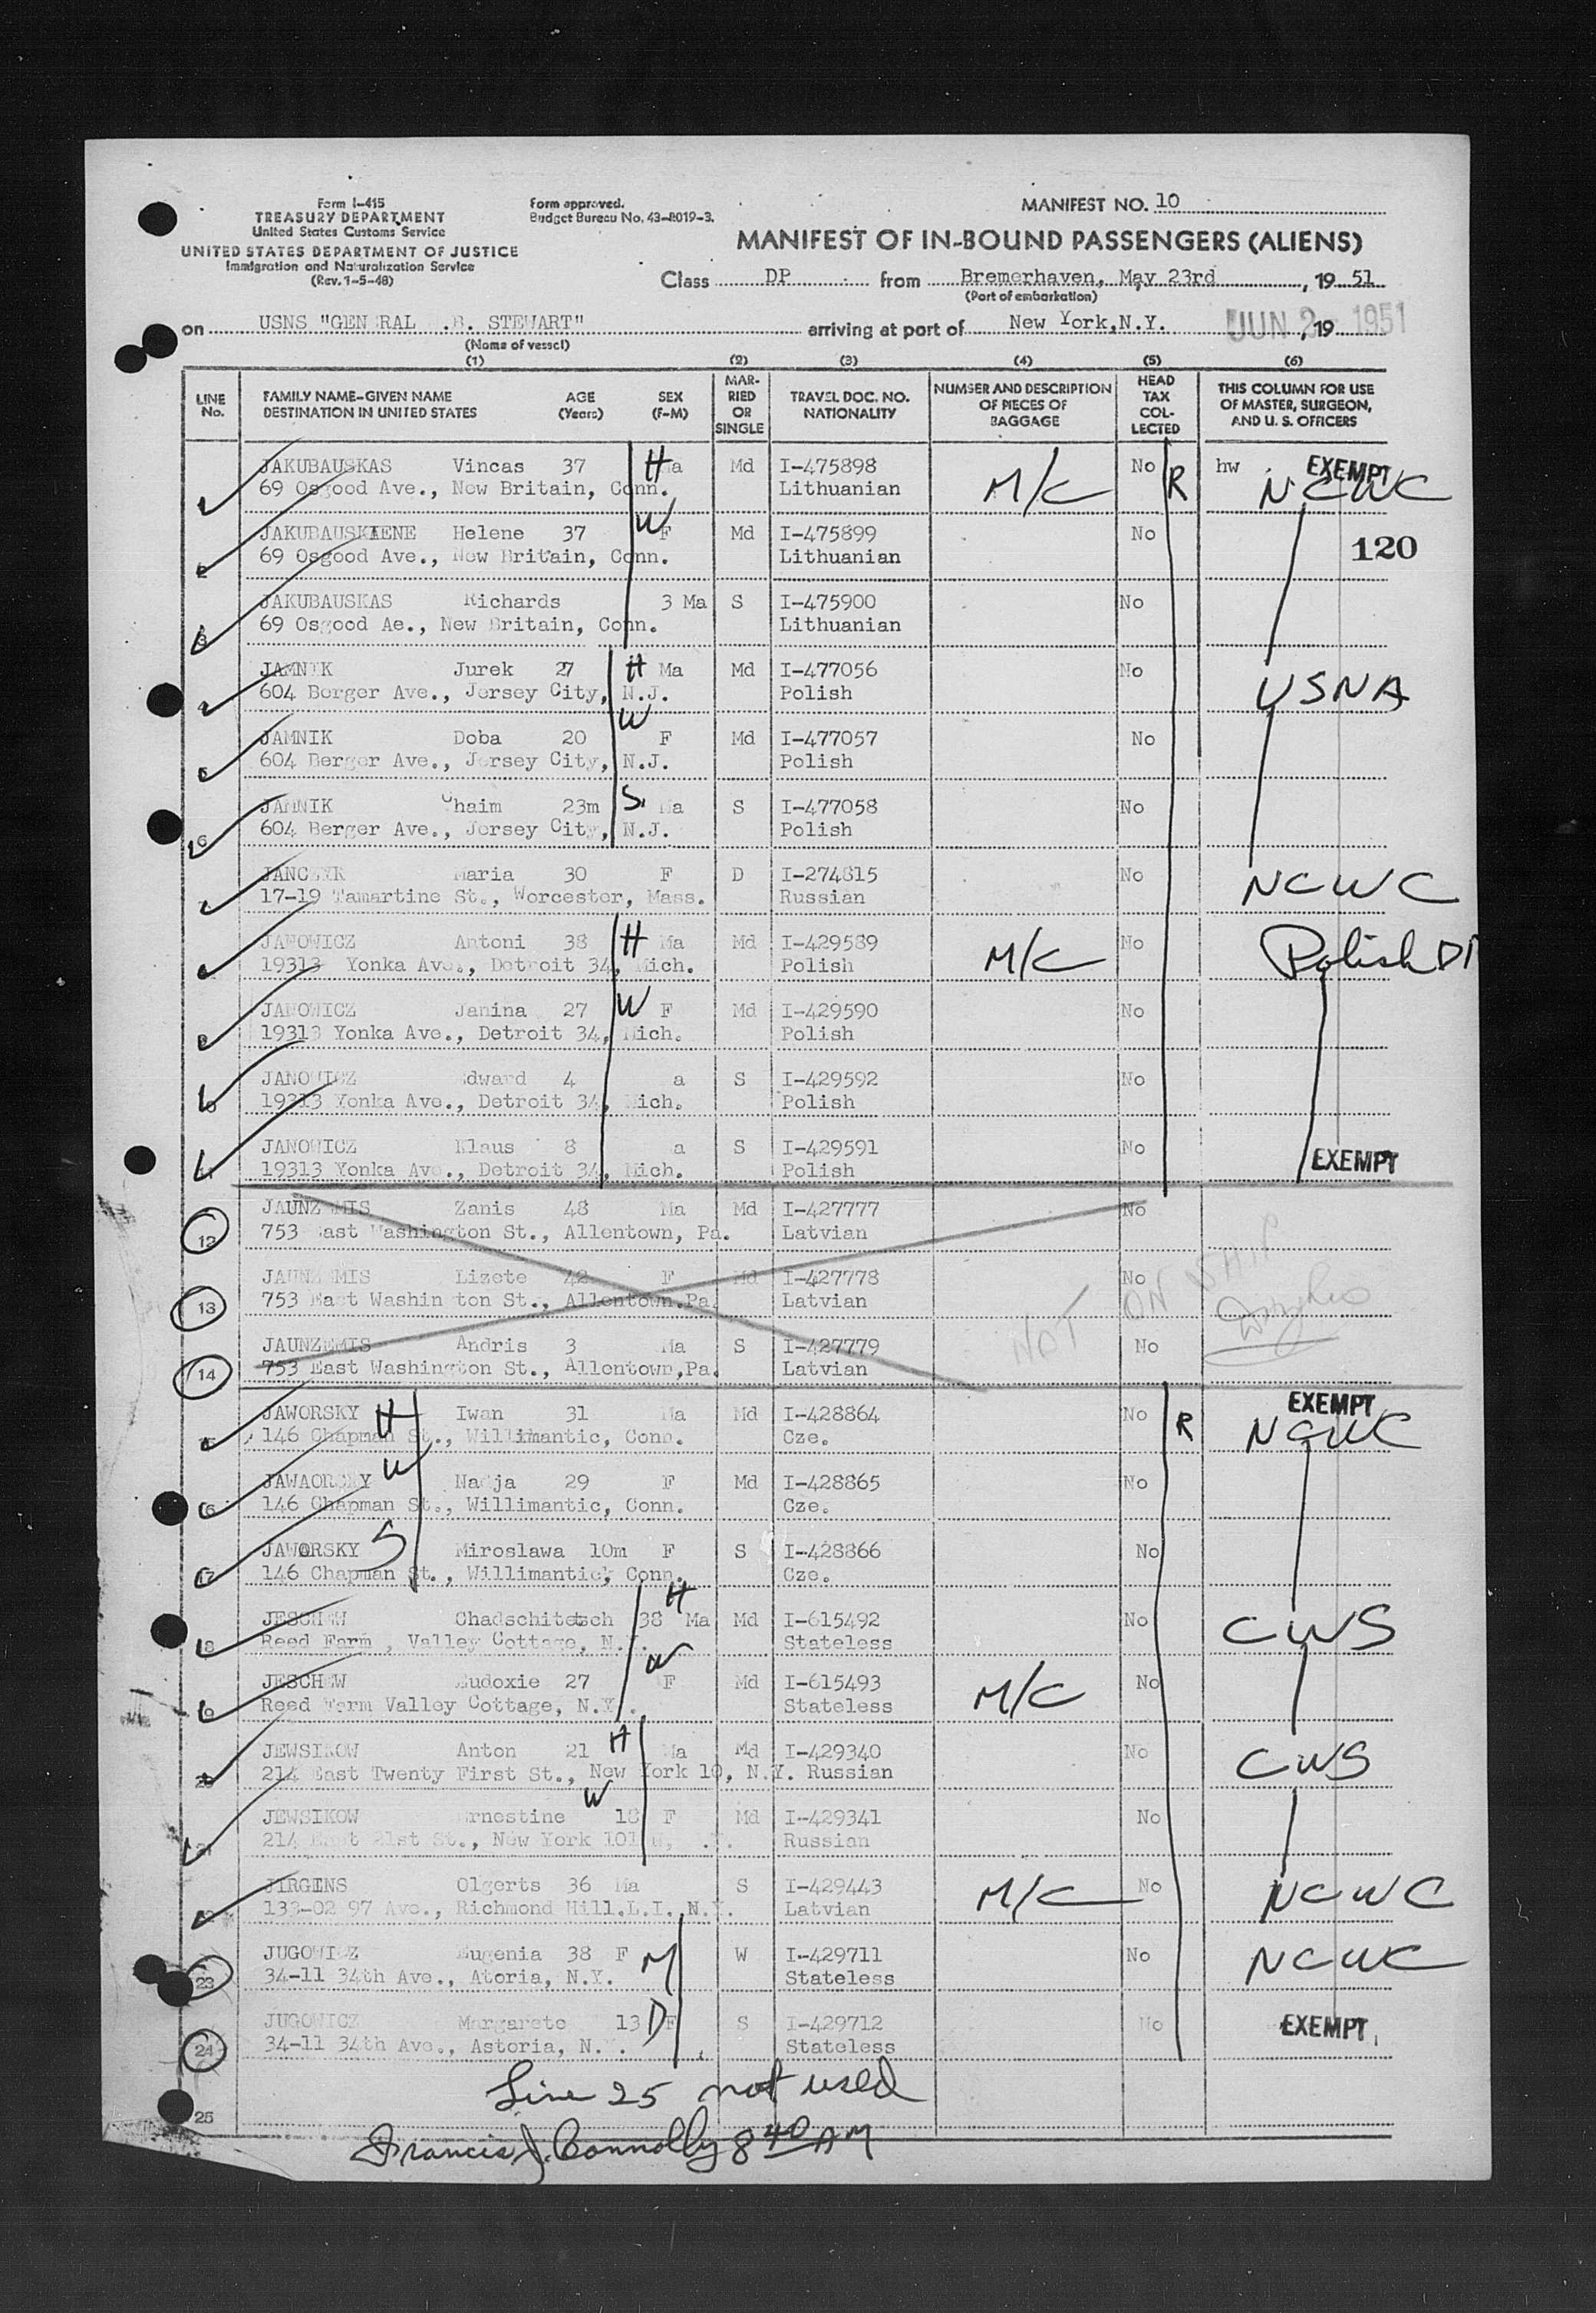 Form I-415
TREASURY DEPARTMENT
United States Customs Service
UNITED STATES DEPARTMENT OF JUSTICE
Immigration and Naturalization Service
(Rev. 1-5-48)
Form approved.
Budget Bureau No. 43-R019-3.
MANIFEST NO. 10
MANIFEST OF IN-BOUND PASSENGERS (ALIENS)
Class DP from Bremerhaven, May 23rd, 19 51
(Port of embarkation)
on USNS "GEN RAL .B. STEWART" arriving at port of New York,N.Y. JUN 2 - 1951, 19
(Name of vessel)
(1) (2) (3) (4) (5) (6)
LINE No. FAMILY NAME-GIVEN NAME DESTINATION IN UNITED STATES AGE (Years) SEX (F-M) MARRIED OR SINGLE TRAVEL DOC. NO. NATIONALITY NUMBER AND DESCRIPTION OF PIECES OF BAGGAGE HEAD TAX COLLECTED THIS COLUMN FOR USE OF MASTER, SURGEON, AND U. S. OFFICERS
JAKUBAUSKAS Vincas 37 H Ma Md I-475898 M/C No R hw EXEMPT NCWC
69 Osgood Ave., New Britain, Conn. Lithuanian
2 JAKUBAUSKIENE Helene 37 W F Md I-475899 No 120
69 Osgood Ave., New Britain, Conn. Lithuanian
3 JAKUBAUSKAS Richards 3 Ma S I-475900 No
69 Osgood Ae., New Britain, Conn. Lithuanian
4 JAMNIK Jurek 27 H Ma Md I-477056 No USNA
604 Berger Ave., Jersey City, N.J. Polish
5 JAMNIK Doba 20 W F Md I-477057 No
604 Berger Ave., Jersey City, N.J. Polish
6 JAMNIK Chaim 23m S Ma S I-477058 No
604 Berger Ave., Jersey City, N.J. Polish
JANCZYK Maria 30 F D I-274815 No NCWC
17-19 Tamartine St., Worcester, Mass. Russian
JANOWICZ Antoni 38 H Ma Md I-429589 M/C No Polish DP
19313 Yonka Ave., Detroit 34, Mich. Polish
JANOWICZ Janina 27 W F Md I-429590 No
19313 Yonka Ave., Detroit 34, Mich. Polish
JANOWICZ Edward 4 Ma S I-429592 No
19313 Yonka Ave., Detroit 34, Mich. Polish
JANOWICZ Klaus 8 Ma S I-429591 No
19313 Yonka Ave., Detroit 34, Mich. Polish EXEMPT
12 JAUNZEMIS Zanis 48 Ma Md I-427777 No
753 East Washington St., Allentown, Pa. Latvian
13 JAUNZEMIS Lizete 42 F Md I-427778 No
753 East Washington St., Allentown.Pa. Latvian
NOT ON SHIP
14 JAUNZEMIS Andris 3 Ma S I-427779 No
753 East Washington St., Allentown,Pa. Latvian
JAWORSKY H Iwan 31 Ma Md I-428864 No R EXEMPT NCWC
146 Chapman St., Willimantic, Conn. Cze.
16 JAWAORSKY W Nadja 29 F Md I-428865 No
146 Chapman St., Willimantic, Conn. Cze.
17 JAWORSKY S Miroslawa 10m F S I-428866 No
146 Chapman St., Willimantic, Conn. Cze.
18 JESCHEW Chadschitetsch 38 H Ma Md I-615492 No CWS
Reed Farm , Valley Cottage, N.Y. Stateless
JESCHEW Eudoxie 27 W F Md I-615493 M/C No
Reed Farm Valley Cottage, N.Y. Stateless
20 JEWSIKOW Anton 21 H Ma Md I-429340 No CWS
214 East Twenty First St., New York 10, N.Y. Russian
21 JEWSIKOW Ernestine W 18 F Md I-429341 No
214 East 21st St., New York 10 Russian
JIRGENS Olgerts 36 Ma S I-429443 M/C No NCWC
133-02 97 Ave., Richmond Hill.L.I. N.Y. Latvian
23 JUGOWICZ Eugenia 38 F M W I-429711 No NCWC
34-11 34th Ave., Atoria, N.Y. Stateless
24 JUGOWICZ Margarete 13 D F S I-429712 No EXEMPT
34-11 34th Ave., Astoria, N.Y. Stateless
Line 25 not used
25
Francis J. Connolly 8 40 AM